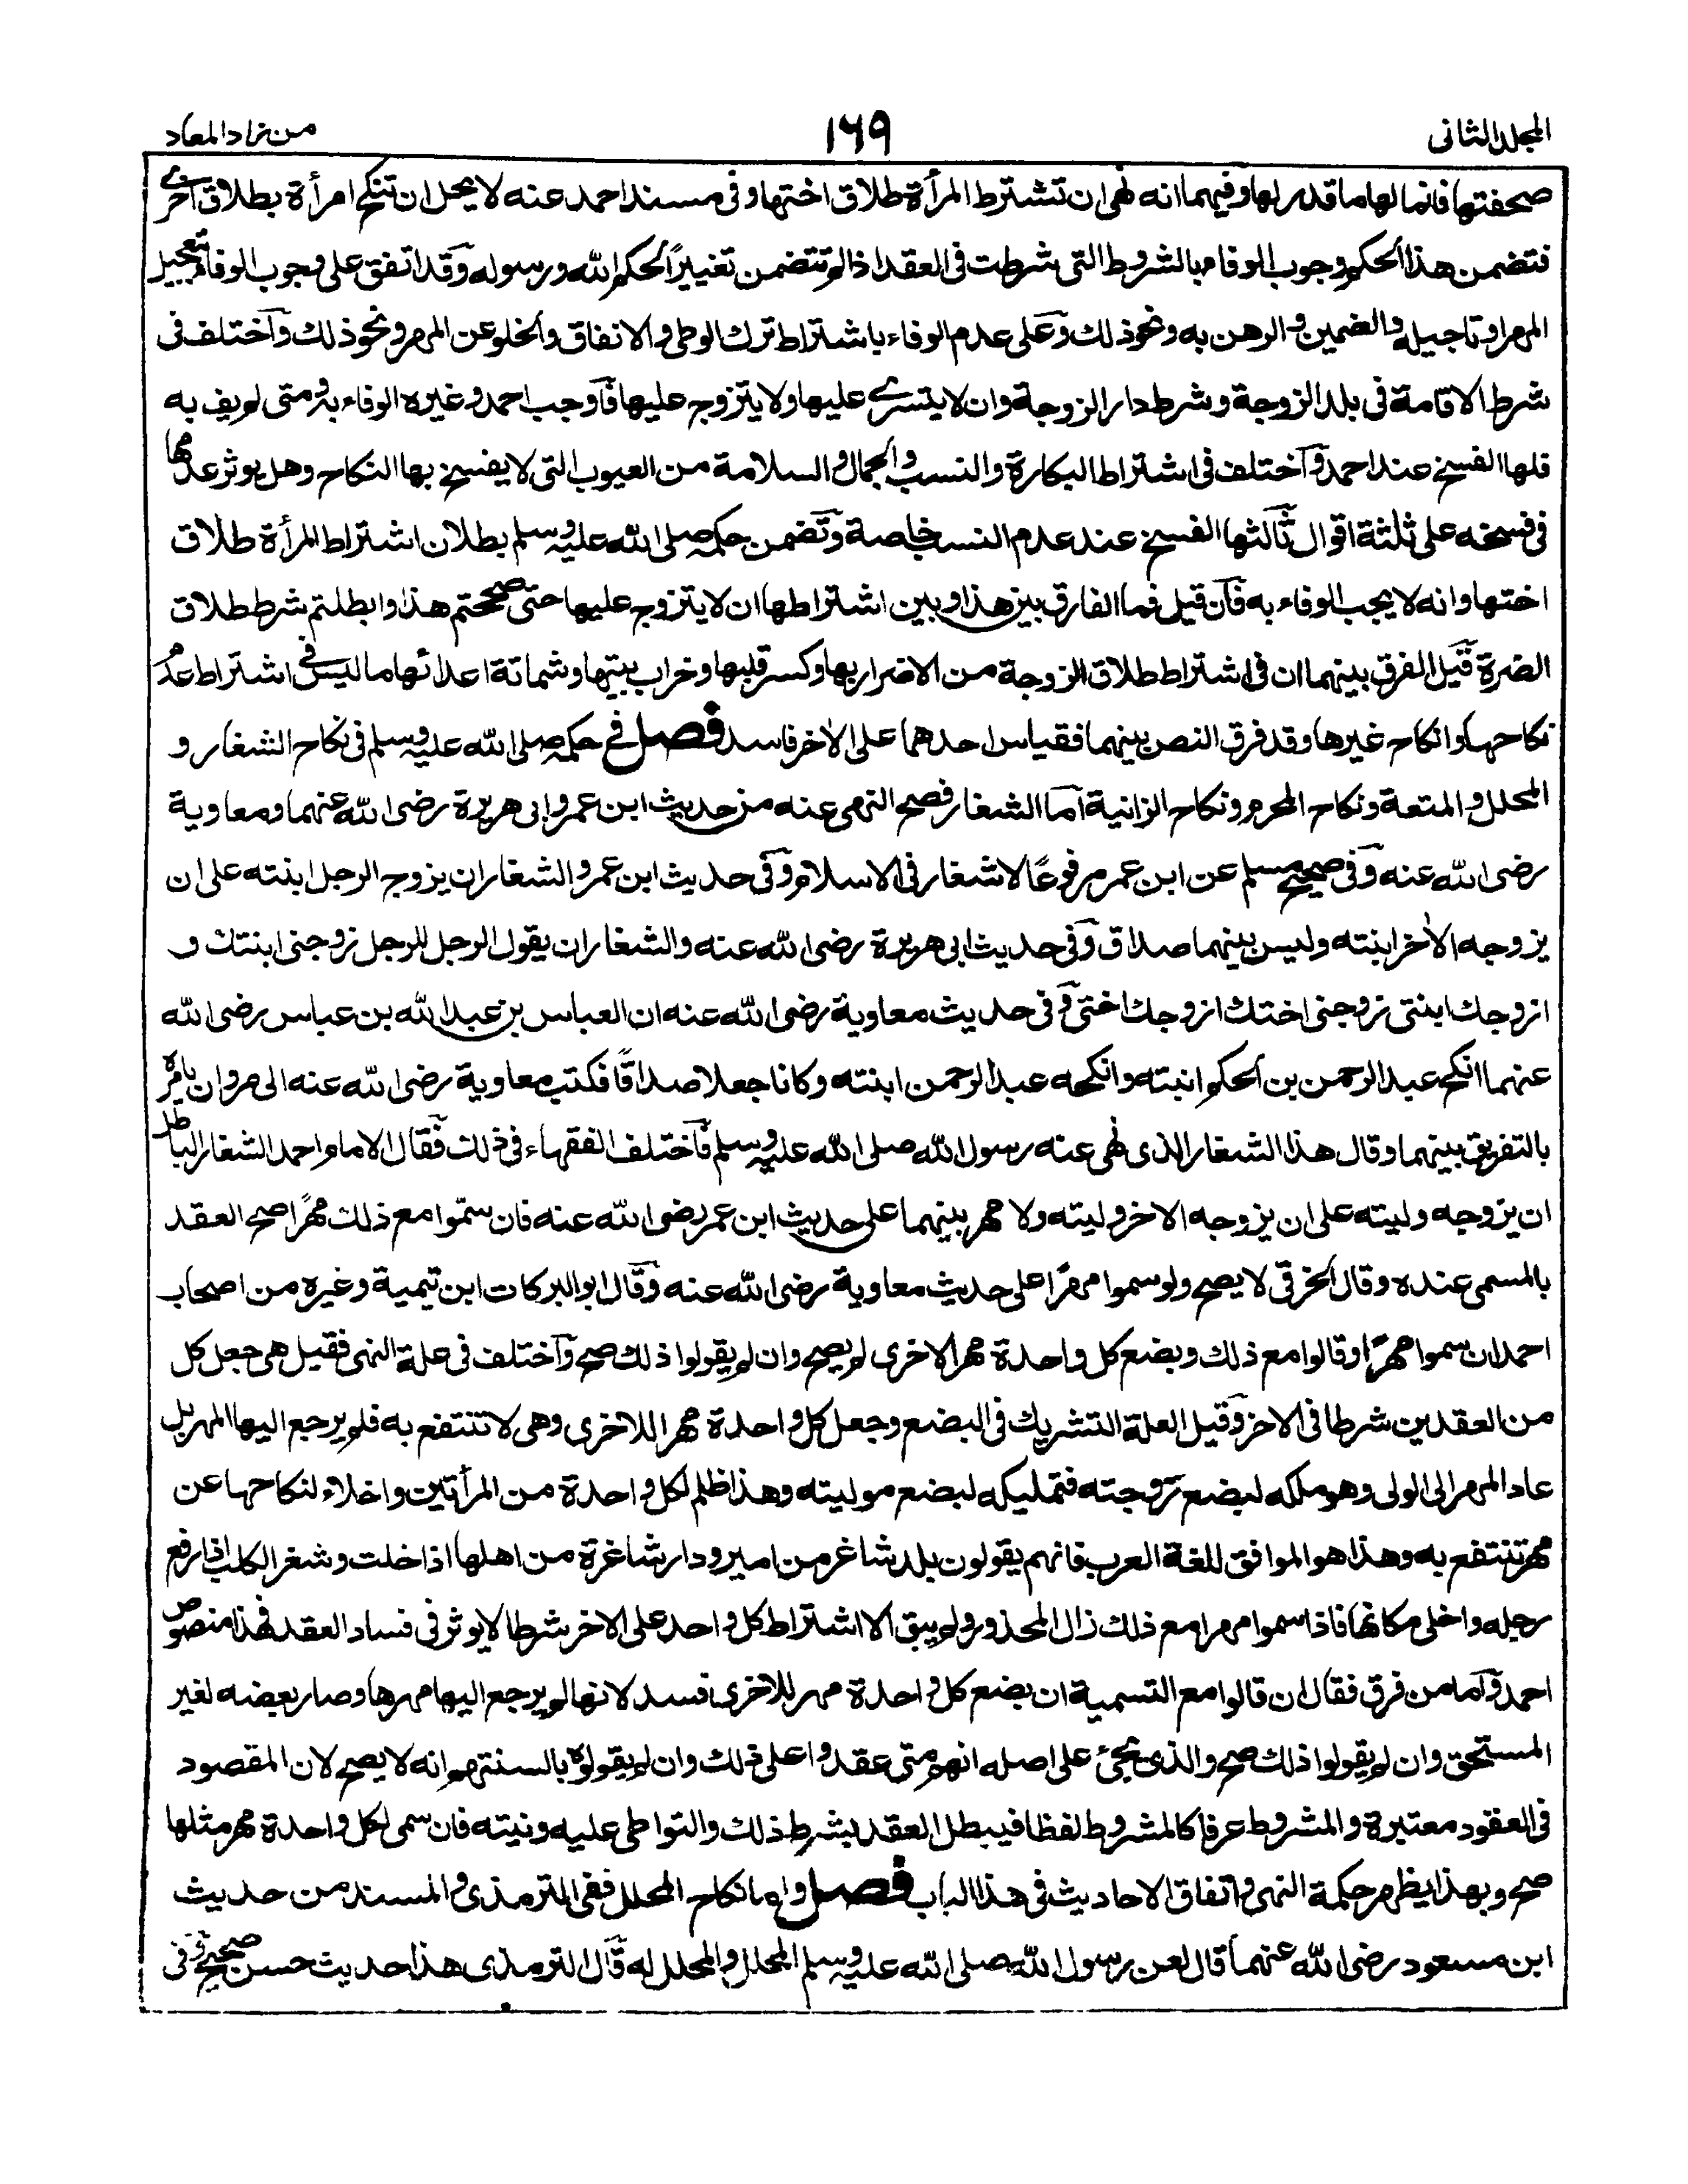 المجلد الثانى
١٦٩
من زاد المعاد
صحفتها فانما لها ما قدر لها وفيهما انه نهى ان تشترط المرأة طلاق اختها وفى مسند احمد عنه لا يحل ان تنكح امرأة بطلاق اخرے
فتضمن هذا الحكم وجوب الوفاء بالشروط التى شرطت فى العقد اذا لم تتضمن تغييرًا لحكم الله ورسوله وقد اتفق على وجوب الوفاء بتعجيل
المهر او تاجيله والضمين والرهن به ونحو ذلك وعلى عدم الوفاء باشتراط ترك الوطى والانفاق والخلو عن المهر ونحو ذلك واختلف فى
شرط الاقامة فى بلد الزوجة وشرط دار الزوجة وان لا يتسرے عليها ولا يتزوج عليها فاوجب احمد وغيره الوفاء به ومتى لم يف به
فلها الفسخ عند احمد واختلف فى اشتراط البكارة والنسب والجمال والسلامة من العيوب التى لا يفسخ بها النكاح وهل يوثر عدمها
فى فسخه على ثلثة اقوال ثالثها الفسخ عند عدم النسب خاصة وتضمن حكمه صلى الله عليه وسلم بطلان اشتراط المرأة طلاق
اختها وانه لا يجب الوفاء به فان قيل فما الفارق بين هذا وبين اشتراطها ان لا يتزوج عليها حتى صححتم هذا وابطلتم شرط طلاق
الضرة قيل الفرق بينهما ان فى اشتراط طلاق الزوجة من الاضرار بها وكسر قلبها وخراب بيتها وشماتة اعدائها ما ليس فى اشتراط عدم
نكاحها وانكاح غيرها وقد فرق النص بينهما فقياس احدهما على الاخر فاسد فصل فے حكمه صلى الله عليه وسلم فى نكاح الشغار و
المحلل والمتعة ونكاح المحرم ونكاح الزانية اما الشغار فصح النهى عنه من حديث ابن عمر وابى هريرة رضى الله عنهما ومعاوية
رضى الله عنه وفى صحيح مسلم عن ابن عمر مرفوعًا لا شغار فى الاسلام وفى حديث ابن عمر والشغار ان يزوج الرجل ابنته على ان
يزوجه الاخر ابنته وليس بينهما صداق وفى حديث ابى هريرة رضى الله عنه والشغار ان يقول الرجل للرجل زوجنى ابنتك و
ازوجك ابنتى زوجنى اختك ازوجك اختى وفى حديث معاوية رضى الله عنه ان العباس بن عبد الله بن عباس رضى الله
عنهما انكح عبد الرحمن بن الحكم ابنته وانكحه عبد الرحمن ابنته وكانا جعلا صداقًا فكتب معاوية رضى الله عنه الى مروان يامره
بالتفريق بينهما وقال هذا الشغار الذى نهى عنه رسول الله صلى الله عليه وسلم فاختلف الفقهاء فى ذلك فقال الامام احمد الشغار الباطل
ان يزوجه وليته على ان يزوجه الاخر وليته ولا مهر بينهما على حديث ابن عمر رضى الله عنه فان سمّوا مع ذلك مهرًا صح العقد
بالمسمى عنده وقال الخرقى لا يصح ولو سموا مهرًا على حديث معاوية رضى الله عنه وقال ابو البركات ابن تيمية وغيره من اصحاب
احمد ان سموا مهرًا وقالوا مع ذلك وبضع كل واحدة مهر الاخرى لم يصح وان لم يقولوا ذلك صح واختلف فى علة النهى فقيل هى جعل كل
من العقدين شرطا فى الاخر وقيل العلة التشريك فى البضع وجعل كل واحدة مهرا للاخرى وهى لا تنتفع به فلم يرجع اليها المهر بل
عاد المهر الى الولى وهو ملكه لبضع زوجته فتمليكه لبضع موليته وهذا ظلم لكل واحدة من المرأتين واخلاء لنكاحها عن
مهر تنتفع به وهذا هو الموافق للغة العرب فانهم يقولون بلد شاغر من امير ودار شاغرة من اهلها اذا خلت وشغر الكلب اذا رفع
رجله واخلى مكانها فاذا سموا مهرا مع ذلك زال المحذور ولم يبق الا اشتراط كل واحد على الاخر شرطا لا يوثر فى فساد العقد فهذا منصوص
احمد واما من فرق فقال ان قالوا مع التسمية ان بضع كل واحدة مهر للاخرى فسد لانها لم يرجع اليها مهرها وصار بعضه لغير
المستحق وان لم يقولوا ذلك صح والذى يجئ على اصله انهم متى عقدوا على ذلك وان لم يقولوه بالسنتهم انه لا يصح لان المقصود
فى العقود معتبرة والمشروط عرفا كالمشروط لفظا فيبطل العقد بشرط ذلك والتواطى عليه ونيته فان سمى لكل واحدة مهر مثلها
صح وبهذا يظهر حكمة النهى واتفاق الاحاديث فى هذا الباب فصل واما نكاح المحلل ففى الترمذى والمسند من حديث
ابن مسعود رضى الله عنهما قال لعن رسول الله صلى الله عليه وسلم المحلل والمحلل له قال الترمذى هذا حديث حسن صحيح وفى